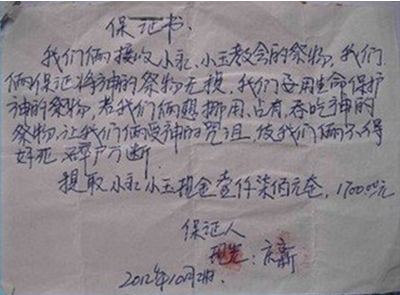 保证书、
我们俩接收小永、小玉教会的祭物,我们
俩保证将神的祭物无损,我们要用生命保护
神的祭物,若我们俩想挪用、占有、吞吃神的
祭物,让我们俩受神的咒诅,使我们俩不得
好死 碎尸万断.
提取小永小玉现金壹仟柒佰元套,1700.00元
保证人
2012年10月2日